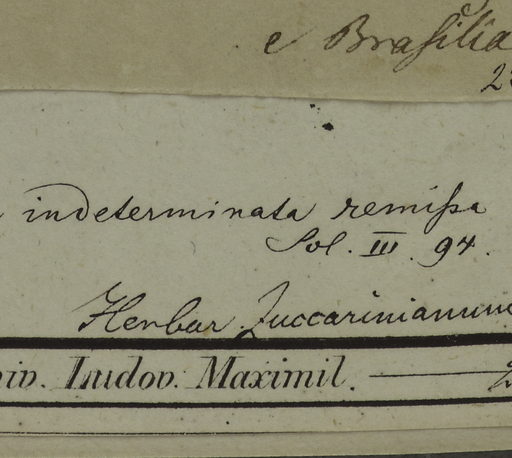 e Brasilia
indeterminata remissa
Sol. III. 94.
Herbar. Zuccarinianum
iv. Ludov. Maximil.